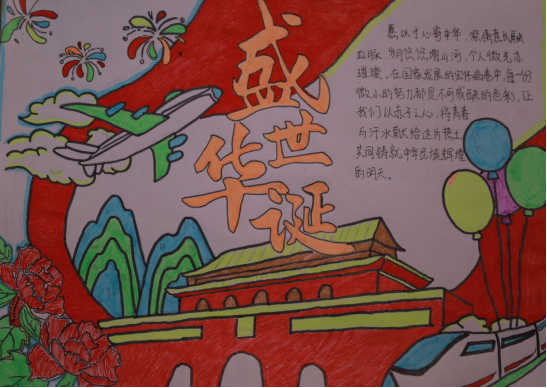 盛
世
华
诞
愿以寸心寄华年,情意长融
血脉,悠悠塑山河,个人微光亦
璀璨,在国家发展的宏伟画卷中,每一份
微小的努力都是不可或缺的色彩,让
我们以赤子之心,将青春
与汗水献给这片热土
共同铸就中华民族辉煌
的明天。